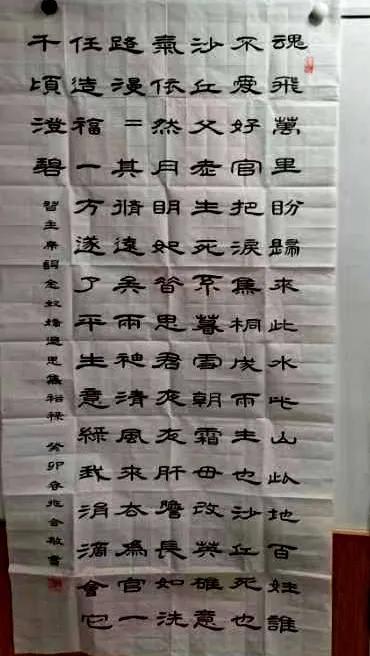 魂飛萬里盼歸來此水此山此地百姓誰
不愛好官把淚焦桐成雨生也沙丘死也
沙丘父老生死系暮雪朝霜毋改英雄意
氣依然月明如昔思君夜夜肝膽長如洗
路漫=其脩遠矣兩袖清風來去為官一
任造福一方遂了平生意綠我涓滴會它
千頃澄碧
習主席詞念奴嬌追思焦裕祿 癸卯春兆合敬書